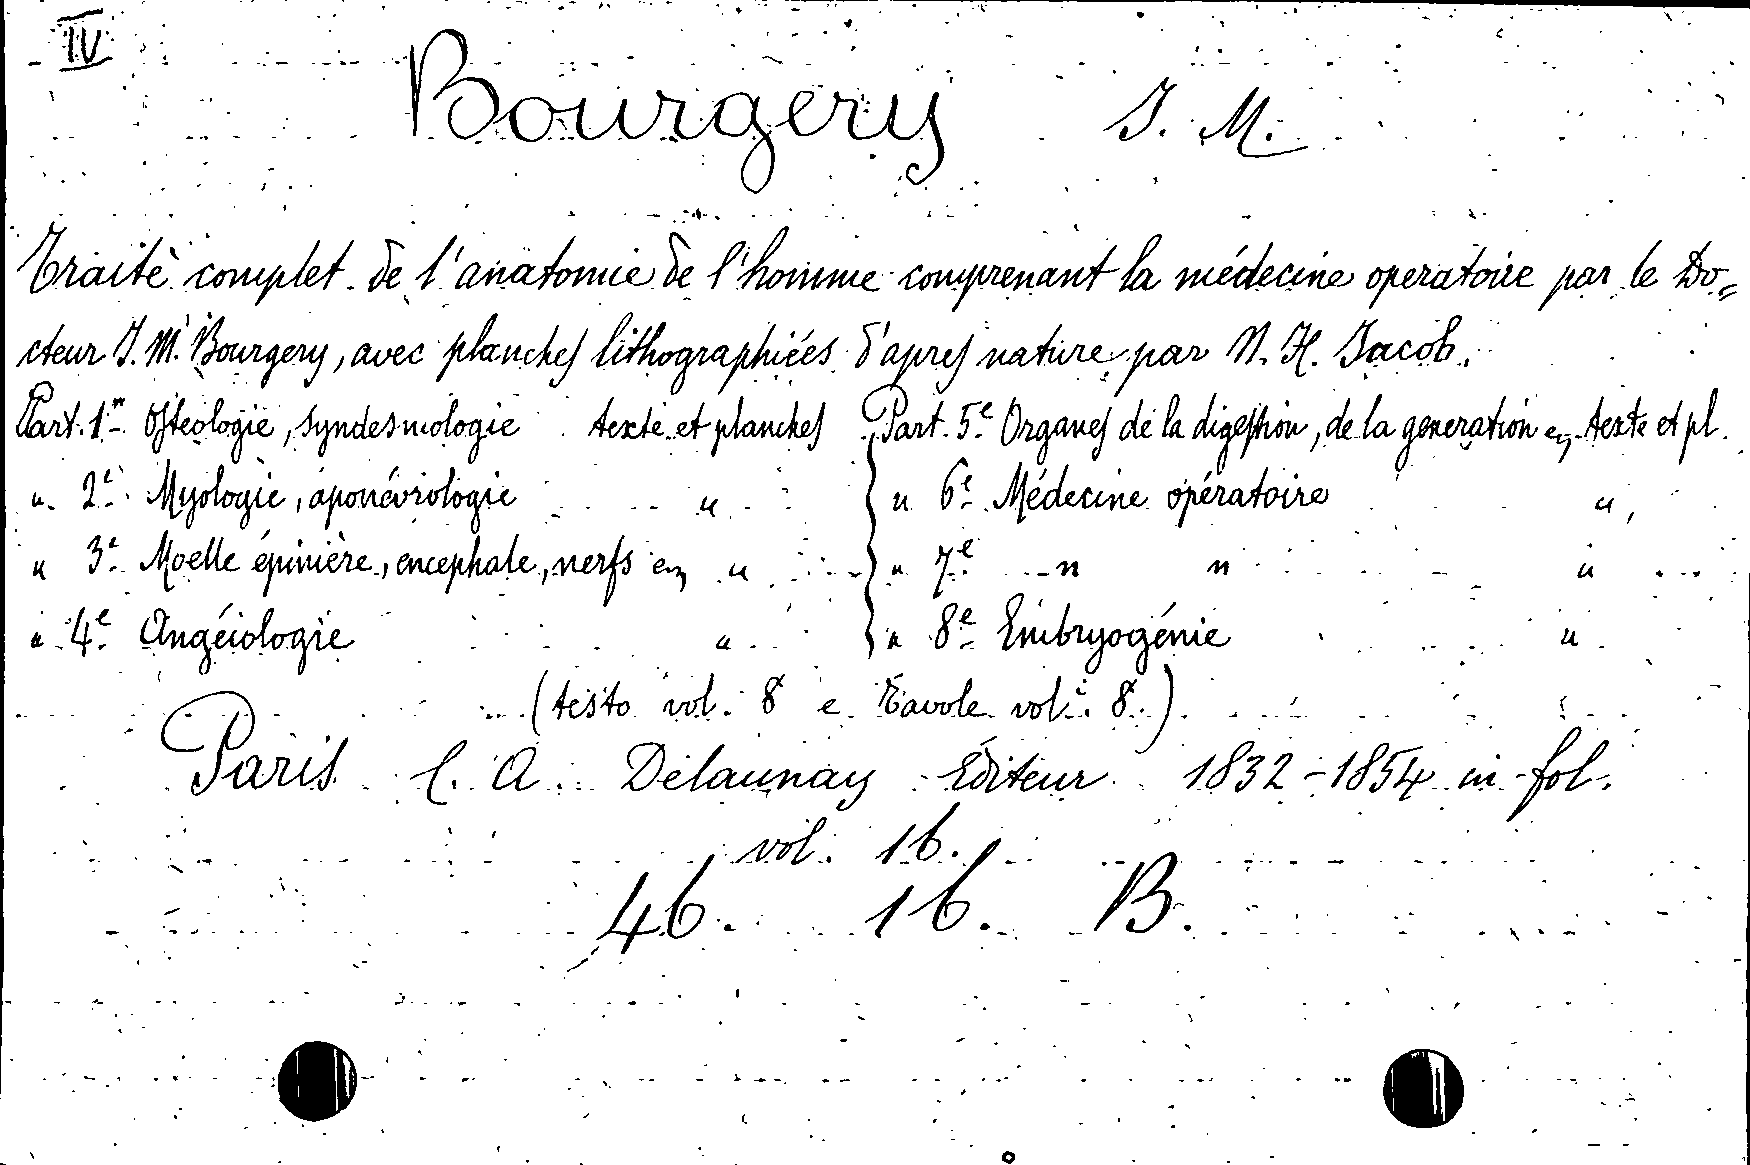 IV
Bourgery J. M.
Traitè complet de l'anatomie de l'homme comprenant la médecine operatoire par le Do=
cteur J. M. Bourgery, avec planches lithographiées d'apres nature par N. H. Jacob.
Part. 1re Osteologie, syndesmologie texte et planches Part. 5e Organes de la digestion, de la generation ec. texte et pl.
" 2e Myologie, aponévrologie " " 6e Médecine opératoire "
" 3e Moelle épinière, encephale, nerfs ec. " " 7e " " "
" 4e Angéiologie " " 8e Embryogénie "
(testo vol. 8 e Tavole vol. 8.)
Paris C. A. Delaunay Éditeur 1832-1854 in-fol.
vol. 16.
46. 16. B.